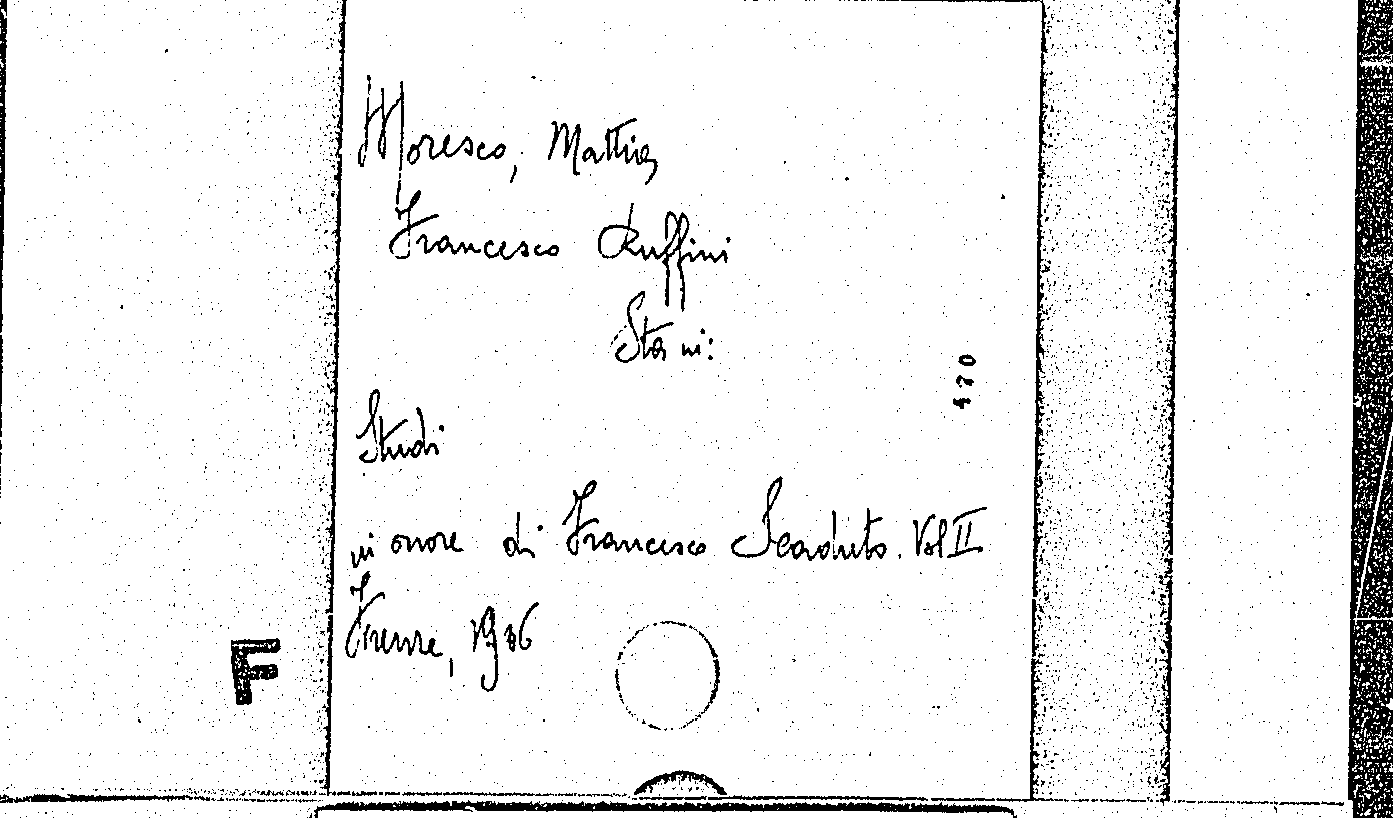 Moresco, Mattia
Francesco Ruffini
Sta in:
470
Studi
in onore di Francesco Scaduto. Vol II
Firenze, 1936
F